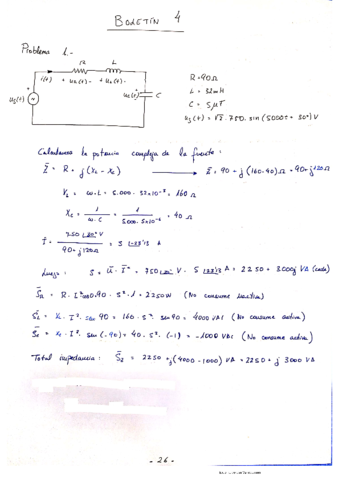 BOLETÍN 4
Problema 1.-
R L
i(t) + u_R(t) - + u_L(t) -
u_g(t) + u_c(t) C
R = 90 Ω
L = 32 mH
C = 5 μF
u_g(t) = √2 · 750 · sin (5000t + 30°) V
Calculamos la potencia compleja de la fuente:
Z̄ = R + j(X_L - X_C) → Z̄ = 90 + j(160-40) Ω = 90 + j120 Ω
X_L = ω·L = 5.000 · 32×10⁻³ = 160 Ω
X_C = 1/(ω·C) = 1/(5.000 · 5×10⁻⁶) = 40 Ω
Ī = 750 /90 + j120 Ω = 5 A
Luego: S = Ū · Ī* = 750 V · 5 A = 2250 + 3000j VA (cede)
S̄_R = R · I² = 90 · 5² · 1 = 2250 W (No consume reactiva)
S̄_L = X_L · I² · sen 90 = 160 · 5² · sen 90 = 4000 VAr (No consume activa)
S̄_C = X_C · I² · sen (-90) = 40 · 5² · (-1) = -1000 VAr (No consume activa)
Total impedancia: S̄_Z = 2250 + j(4000 - 1000) VA = 2250 + j 3000 VA
- 26 -